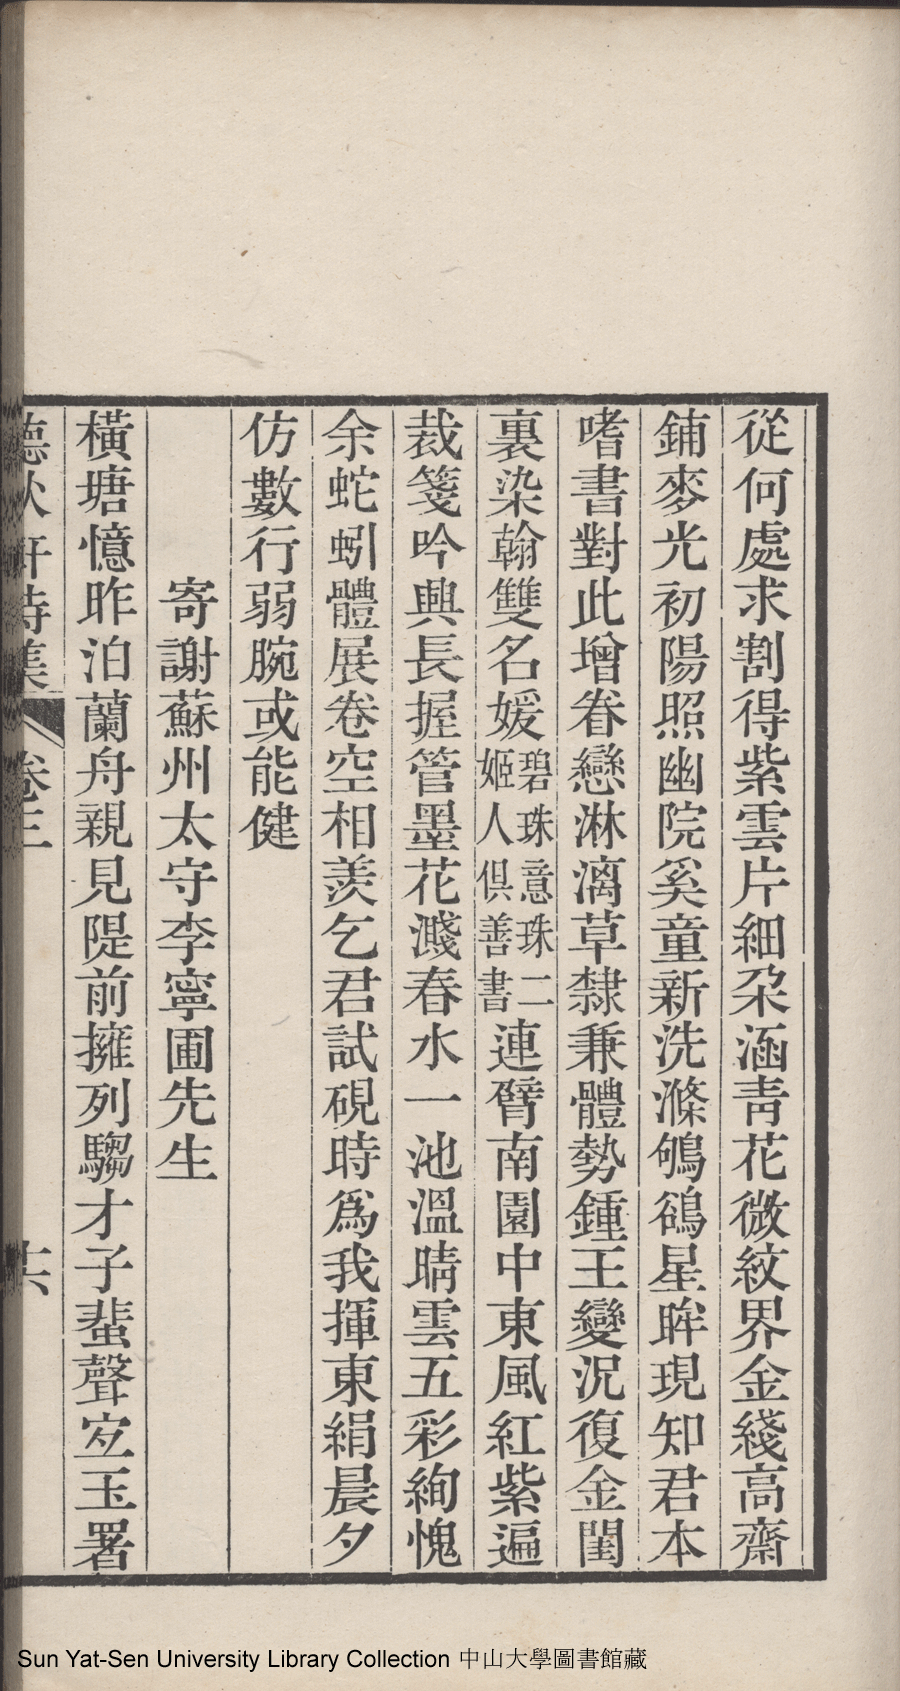 從何處求割得紫雲片細朶涵靑花微紋界金綫高齋
鋪麥光初陽照幽院奚童新洗滌鴝鵒星眸現知君本
嗜書對此增眷戀淋漓草隸兼體勢鍾王變況復金閨
裏染翰雙名媛碧珠意珠二姬人俱善書連臂南園中東風紅紫遍
裁箋吟興長握管墨花濺春水一池溫晴雲五彩絢愧
余蛇蚓體展卷空相羨乞君試硯時爲我揮東絹晨夕
仿數行弱腕或能健
寄謝蘇州太守李寧圃先生
橫塘憶昨泊蘭舟親見隄前擁列騶才子蜚聲宜玉署
德水軒詩集 卷三 十六
Sun Yat-Sen University Library Collection 中山大學圖書館藏